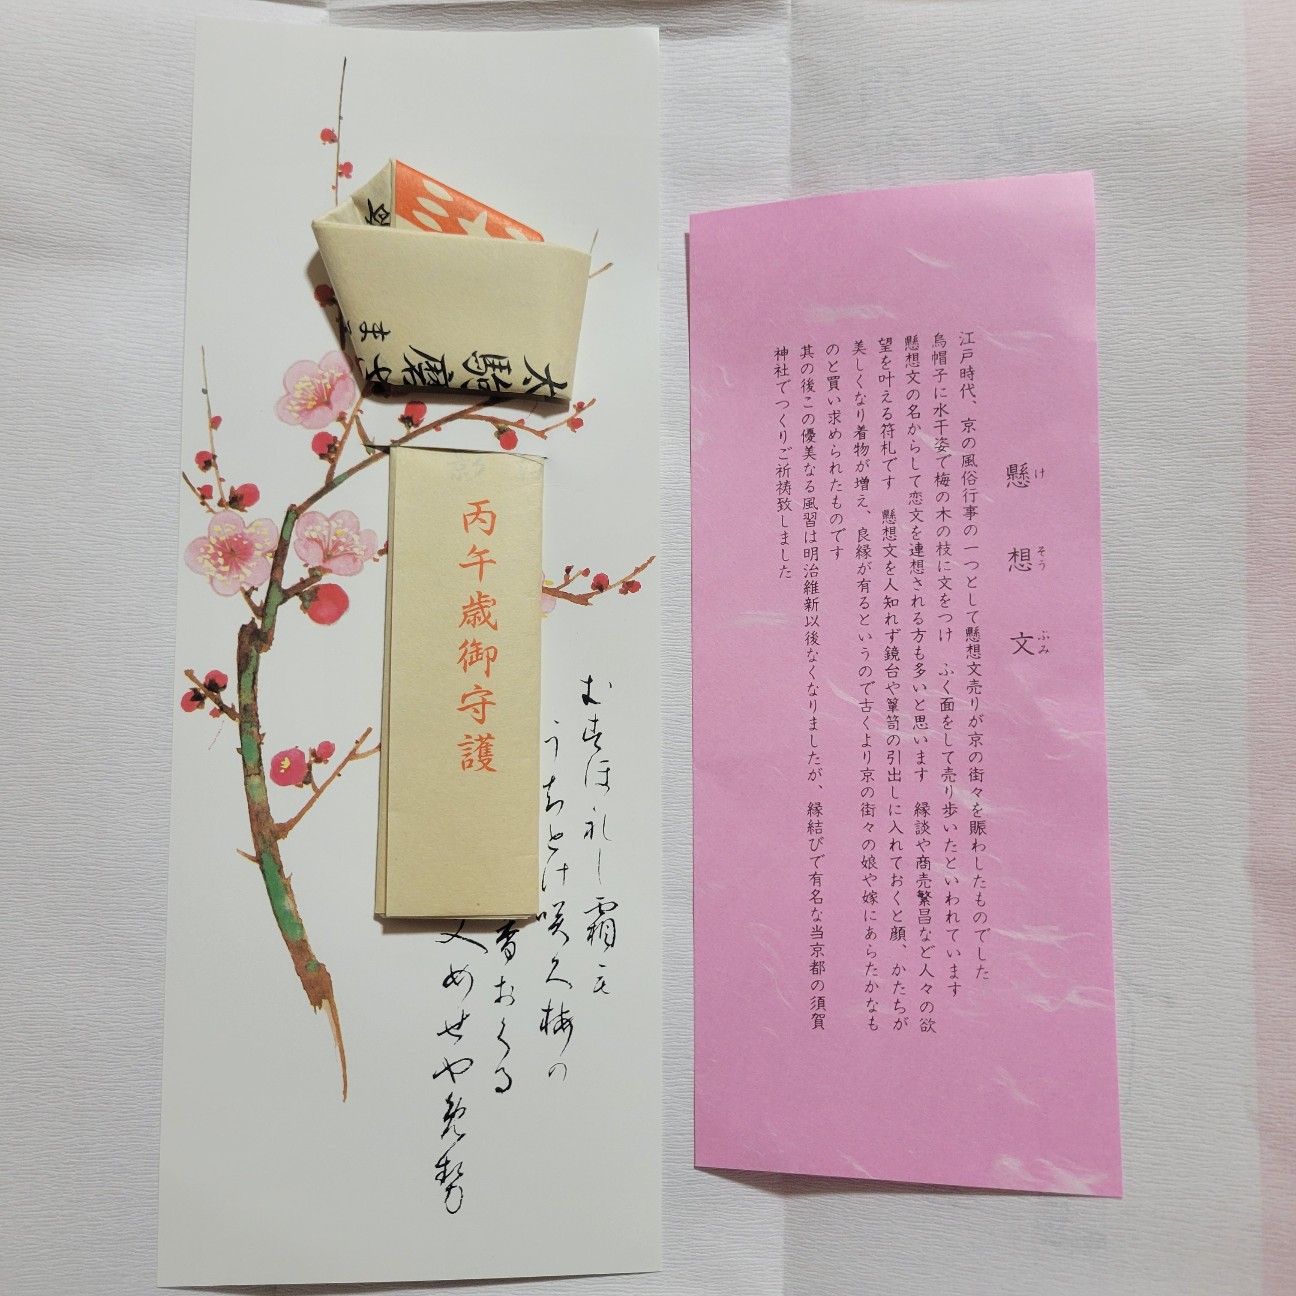 丙午歳御守護
むすほれし霜も
うちとけ咲久梅の
香おくる
文めせや
懸想文
けそうぶみ
江戸時代、京の風俗行事の一つとして懸想文売りが京の街々を賑わしたものでした
烏帽子に水干姿で梅の木の枝に文をつけ　ふく面をして売り歩いたといわれています
懸想文の名からして恋文を連想される方も多いと思います　縁談や商売繁昌など人々の欲
望を叶える符札です　懸想文を人知れず鏡台や箪笥の引出しに入れておくと顔、かたちが
美しくなり着物が増え、良縁が有るというので古くより京の街々の娘や嫁にあらたかなも
のと買い求められたものです
其の後この優美なる風習は明治維新以後なくなりましたが、縁結びで有名な当京都の須賀
神社でつくりご祈祷致しました